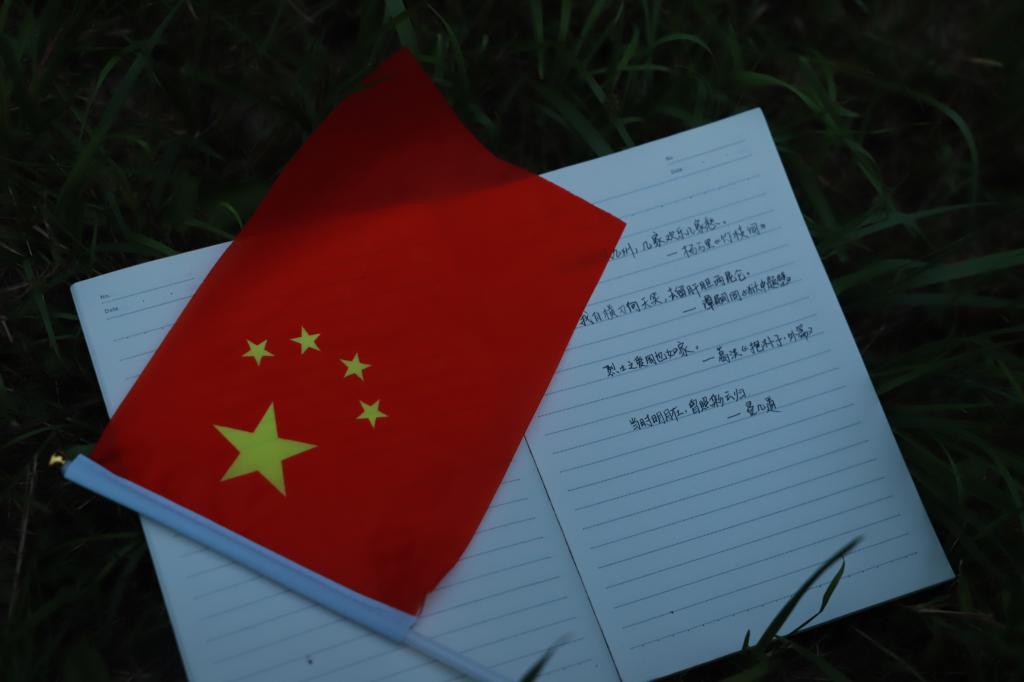 No.
Date
No.
Date
九州，几家欢乐几家愁。
— 杨万里《竹枝词》
我自横刀向天笑，去留肝胆两昆仑。
— 谭嗣同《狱中题壁》
烈士之爱国也如家。 — 葛洪《抱朴子·外篇》
当时明月在，曾照彩云归
— 晏几道